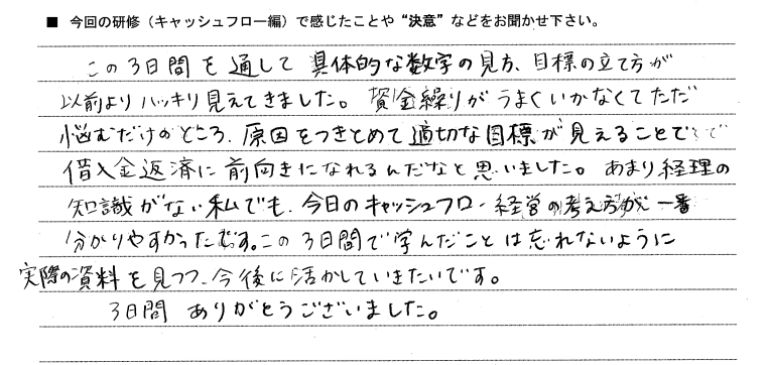 ■ 今回の研修（キャッシュフロー編）で感じたことや“決意”などをお聞かせ下さい。
この3日間を通して 具体的な数字の見方、目標の立て方が
以前よりハッキリ見えてきました。資金繰りがうまくいかなくてただ
悩むだけのところ、原因をつきとめて適切な目標が見えることで
借入金返済に前向きになれるんだなと思いました。あまり経理の
知識がない私でも、今日のキャッシュフロー経営の考え方が一番
分かりやすかったです。この3日間で学んだことは忘れないように
実際の資料を見つつ、今後に活かしていきたいです。
3日間 ありがとうございました。